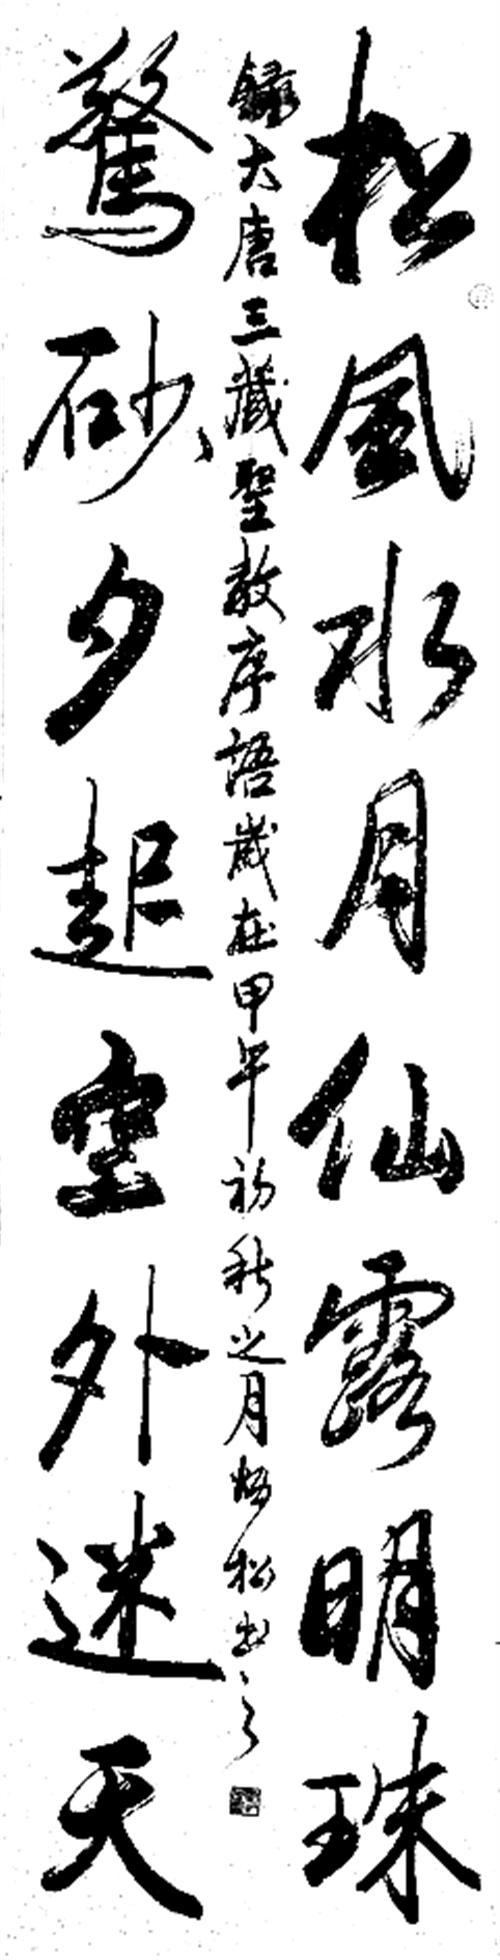 松風水月仙露明珠
驚砂夕起空外迷天
錄大唐三藏聖教序語歲在甲午初秋之月松書之